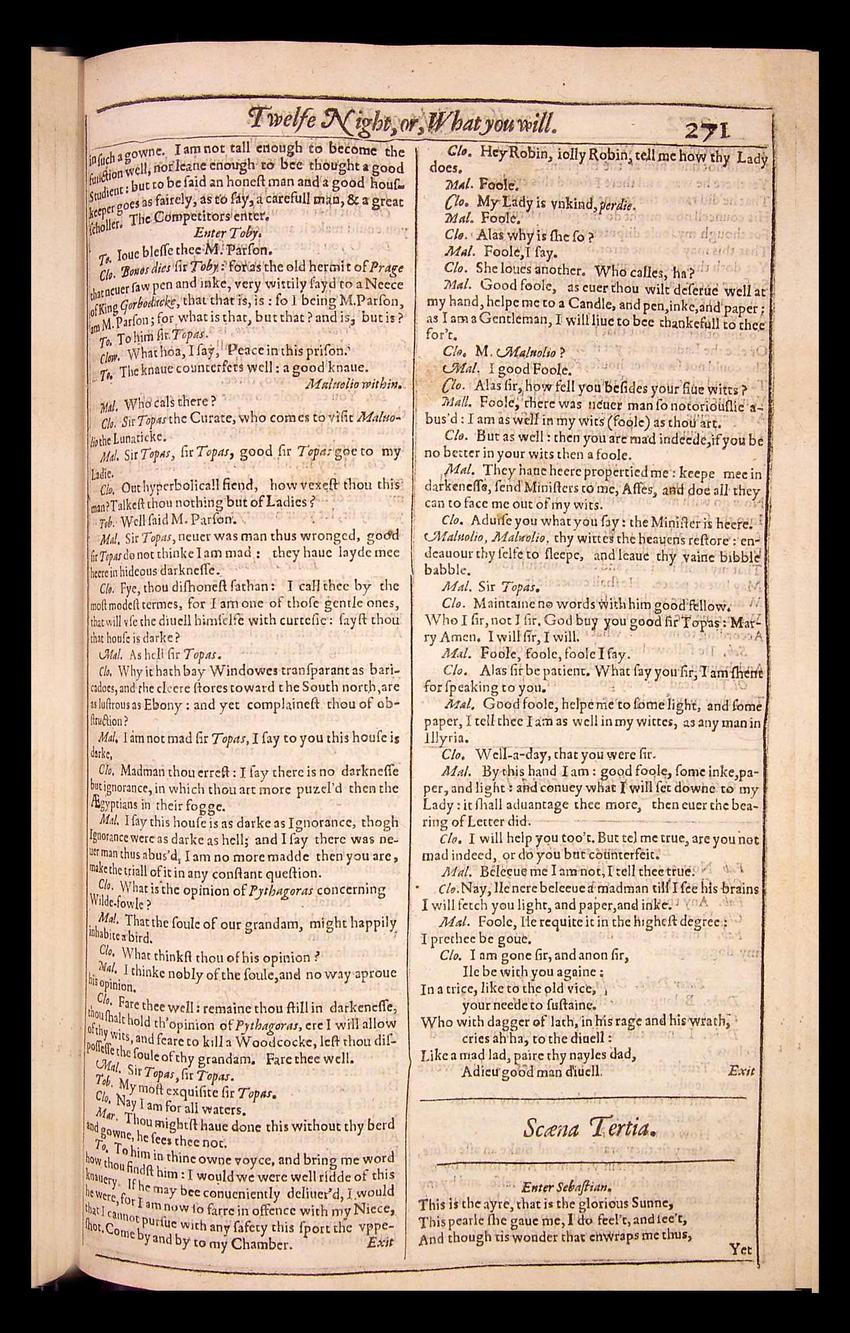 Twelfe Night, or, What you will.
271
in such a gowne. I am not tall enough to become the
function well, nor leane enough to bee thought a good
Studient: but to be said an honest man and a good hous-
keeper goes as fairely, as to say, a carefull man, & a great
scholler. The Competitors enter.
Enter Toby.
To. Ioue blesse thee M. Parson.
Clo. Bonos dies sir Toby: for as the old hermit of Prage
that neuer saw pen and inke, very wittily sayd to a Neece
of King Gorbodacke, that that is, is: so I being M. Parson,
am M. Parson; for what is that, but that? and is, but is?
To. To him sir Topas.
Clow. What hoa, I say, Peace in this prison.
To. The knaue counterfets well: a good knaue.
Maluolio within.
Mal. Who cals there?
Clo. Sir Topas the Curate, who comes to visit Maluo-
lio the Lunaticke.
Mal. Sir Topas, sir Topas, good sir Topas goe to my
Ladie.
Clo. Out hyperbolicall fiend, how vexest thou this
man? Talkest thou nothing but of Ladies?
Tob. Well said M. Parson.
Mal. Sir Topas, neuer was man thus wronged, good
sir Topas do not thinke I am mad: they haue layde mee
heere in hideous darknesse.
Clo. Fye, thou dishonest sathan: I call thee by the
most modest termes, for I am one of those gentle ones,
that will vse the diuell himselfe with curtesie: sayst thou
that house is darke?
Mal. As hell sir Topas.
Clo. Why it hath bay Windowes transparant as bari-
cadoes, and the cleere stores toward the South north, are
as lustrous as Ebony: and yet complainest thou of ob-
struction?
Mal. I am not mad sir Topas, I say to you this house is
darke.
Clo. Madman thou errest: I say there is no darknesse
but ignorance, in which thou art more puzel'd then the
Ægyptians in their fogge.
Mal. I say this house is as darke as Ignorance, thogh
Ignorance were as darke as hell; and I say there was ne-
uer man thus abus'd, I am no more madde then you are,
make the triall of it in any constant question.
Clo. What is the opinion of Pythagoras concerning
Wilde-fowle?
Mal. That the soule of our grandam, might happily
inhabite a bird.
Clo. What thinkst thou of his opinion?
Mal. I thinke nobly of the soule, and no way aproue
his opinion.
Clo. Fare thee well: remaine thou still in darkenesse,
thou shalt hold th'opinion of Pythagoras, ere I will allow
of thy wits, and feare to kill a Woodcocke, lest thou dis-
possesse the soule of thy grandam. Fare thee well.
Mal. Sir Topas, sir Topas.
Tob. My most exquisite sir Topas.
Clo. Nay I am for all waters.
Mar. Thou mightst haue done this without thy berd
and gowne, he sees thee not.
To. To him in thine owne voyce, and bring me word
how thou findst him: I would we were well ridde of this
knauery. If he may bee conueniently deliuer'd, I would
he were, for I am now so farre in offence with my Niece,
that I cannot pursue with any safety this sport the vppe-
shot. Come by and by to my Chamber. Exit
Clo. Hey Robin, iolly Robin, tell me how thy Lady
does.
Mal. Foole.
Clo. My Lady is vnkind, perdie.
Mal. Foole.
Clo. Alas why is she so?
Mal. Foole, I say.
Clo. She loues another. Who calles, ha?
Mal. Good foole, as euer thou wilt deserue well at
my hand, helpe me to a Candle, and pen, inke, and paper;
as I am a Gentleman, I will liue to bee thankefull to thee
for't.
Clo. M. Maluolio?
Mal. I good Foole.
Clo. Alas sir, how fell you besides your fiue witts?
Mall. Foole, there was neuer man so notoriouslie a-
bus'd: I am as well in my wits (foole) as thou art.
Clo. But as well: then you are mad indeede, if you be
no better in your wits then a foole.
Mal. They haue heere propertied me: keepe mee in
darkenesse, send Ministers to me, Asses, and doe all they
can to face me out of my wits.
Clo. Aduise you what you say: the Minister is heere.
Maluolio, Maluolio, thy wittes the heauens restore: en-
deauour thy selfe to sleepe, and leaue thy vaine bibble
babble.
Mal. Sir Topas.
Clo. Maintaine no words with him good fellow.
Who I sir, not I sir. God buy you good sir Topas: Mar-
ry Amen. I will sir, I will.
Mal. Foole, foole, foole I say.
Clo. Alas sir be patient. What say you sir, I am shent
for speaking to you.
Mal. Good foole, helpe me to some light, and some
paper, I tell thee I am as well in my wittes, as any man in
Illyria.
Clo. Well-a-day, that you were sir.
Mal. By this hand I am: good foole, some inke, pa-
per, and light: and conuey what I will set downe to my
Lady: it shall aduantage thee more, then euer the bea-
ring of Letter did.
Clo. I will help you too't. But tel me true, are you not
mad indeed, or do you but counterfeit.
Mal. Beleeue me I am not, I tell thee true.
Clo. Nay, Ile nere beleeue a madman till I see his brains
I will fetch you light, and paper, and inke.
Mal. Foole, Ile requite it in the highest degree:
I prethee be gone.
Clo. I am gone sir, and anon sir,
Ile be with you againe:
In a trice, like to the old vice,
your neede to sustaine.
Who with dagger of lath, in his rage and his wrath,
cries ah ha, to the diuell:
Like a mad lad, paire thy nayles dad,
Adieu good man diuell. Exit
Scæna Tertia.
Enter Sebastian.
This is the ayre, that is the glorious Sunne,
This pearle she gaue me, I do feel't, and see't,
And though tis wonder that enwraps me thus,
Yet